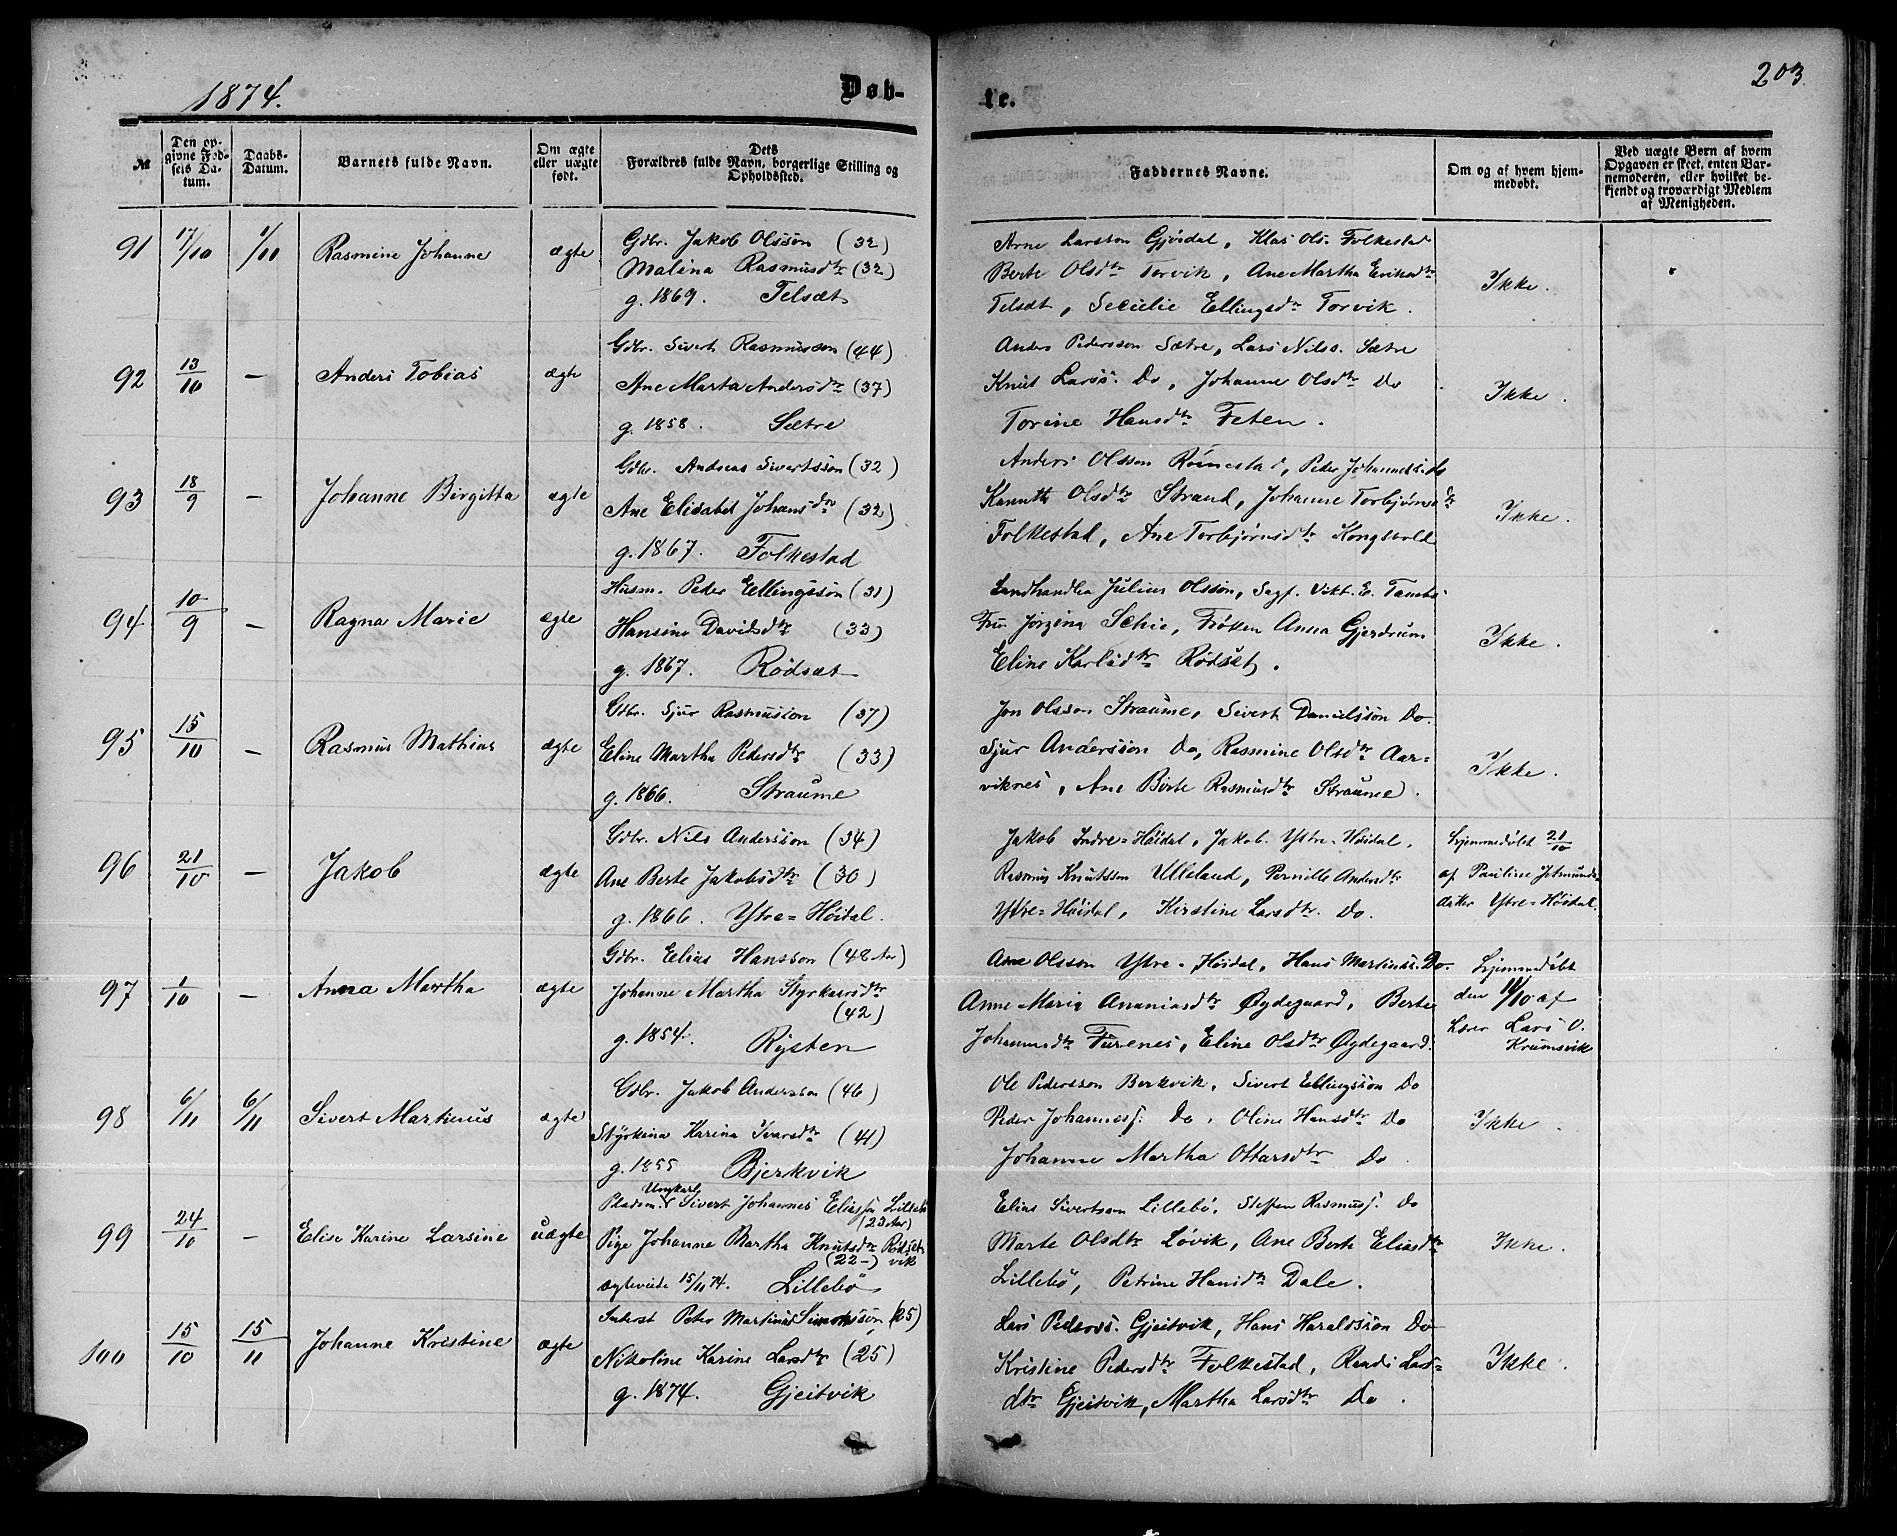 1874.
Døb-
te.
203.
№
Den op-
givne Fød-
sels Da-
tum.
Daabs-
Datum.
Barnets fulde Navn.
Om ægte
eller uægte
født.
Dets
Forældres fulde Navn, borgerlige Stilling og
Opholdssted.
Faddernes Navne.
Om og af hvem hjem-
medøbt.
Ved uægte Børn af hvem
Opgaven er skeet, enten Bar-
nemoderen, eller hvilket be-
kjendt og troværdigt Medlem
af Menigheden.
91 17/10 1/11 Rasmine Johanne ægte
Gdbr. Jakob Olsson (32)
Malina Rasmusdtr (32)
g. 1869. Telsæt
Arne Larsson Gjørdal, Klas Ols. Folkestad
Berte Olsdtr Torvik, Ane Martha Eriksdtr
Telsæt, Secilie Ellingsdr Torvik.
Ikke.
92 13/10 — Anders Tobias ægte
Gdbr. Sivert Rasmusson (44)
Ane Marta Andersdtr (37)
g. 1858. Sætre
Anders Pedersson Sætre, Lars Nilss. Sætre
Knut Larss. Do, Johanne Olsdtr Do
Torine Hansdtr Feten.
Ikke.
93 18/9 — Johanne Birgitta ægte
Gdbr. Andreas Sivertsson (32)
Ane Elisabet Johansdtr (32)
g. 1867. Folkestad
Anders Olsson Rømestad, Peder Johanness. do
Olsdtr Strand, Johanne Torbjørnsdtr
Folkestad, Ane Torbjørnsdtr Kongsvold
Ikke.
94 10/9 — Ragna Marie ægte
Husm. Peder Ellingsson (31)
Hansine Davidsdtr (33)
g. 1867. Rødsæt
Landhandler Julius Olsson, Sagf. Vikt. E. Tambs.
Fru Jørgena Schie, Frøken Anna Gjerdrum
Eline Karlsdtr Rødset.
Ikke.
95 15/10 — Rasmus Mathias ægte
Gdbr. Sjur Rasmusson (37)
Eline Martha Pedersdtr (33)
g. 1866. Straume
Jon Olsson Straume, Sivert Danielsson Do.
Sjur Andersson Do, Rasmine Olsdtr Aar-
viknes, Ane Berte Rasmusdtr Straume.
Ikke.
96 21/10 — Jakob ægte
Gdbr. Nils Andersson (34)
Ane Berte Jakobsdtr (30)
g. 1866. Ytre=Høidal.
Jakob Indre=Høidal, Jakob Ytre-Høidal,
Rasmus Knutsson Ulleland, Pernille Andersdtr
Ytre=Høidal, Kirstine Larsdtr. Do.
Hjemmedøbt 21/10
af Pauline Johmunds-
datter Ytre=Høidal.
97 1/10 — Anna Martha ægte
Gdbr. Elias Hansson (48 Aar)
Johanne Martha Styrkarsdtr
(42)
g. 1854. Rysten
Arne Olsson Ytre-Høidal, Hans Martinus. Do.
Anne Maria Ananiasdtr Øydegaard, Berte
Johannesdtr Furenes, Eline Olsdtr Øydegaard.
Hjemmedøbt
den 11/10 af
Lærer Lars O.
Krumsvik
98 6/11 6/11 Sivert Martinus ægte
Gdbr. Jakob Andersson (46)
Styrkina Karina Ivarsdtr (41)
g. 1855 Bjerkvik
Ole Pedersson Berkvik, Sivert Ellingsson Do
Peder Johanness. Do, Oline Hansdtr Do
Johanne Martha Ottarsdtr Do
Ikke.
99 24/10 — Elise Karine Larsine uægte
Ungkarl
Pladsm. Sivert Johannes Eliassn Lillebø
(23 Aar)
Pige Johanne Martha Knutsdtr Rødset-
(22 —) vik
ægteviede 15/11 74. Lillebø
Elias Sivertsson Lillebø, Steffen Rasmuss. Do
Marte Olsdtr Løvik, Ane Berte Eliasdtr
Lillebø, Petrine Hansdtr Dale.
Ikke.
100 15/10 15/11 Johanne Kristine ægte
Inderst Peter Martinus Simonsson (25)
Nikoline Karine Larsdtr (25)
g. 1874. Gjeitvik
Lars Pederss. Gjeitvik, Hans Haraldsson Do
Kristine Pedersdtr Folkestad, Randi Lars=
dtr Gjeitvik, Martha Larsdtr Do.
Ikke.